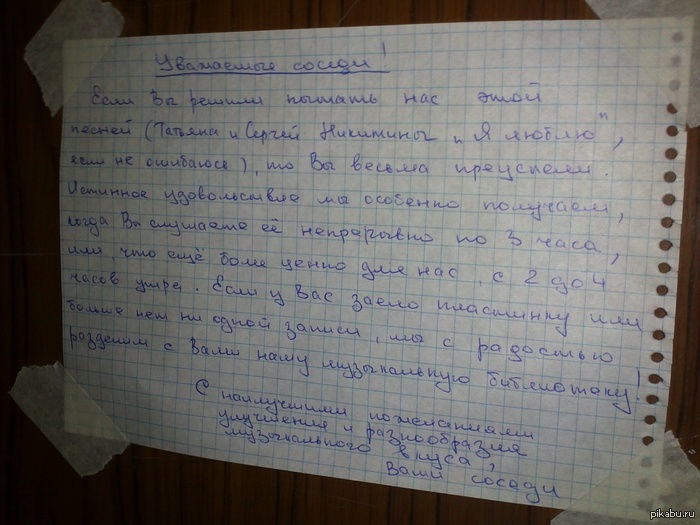 Уважаемые соседи!
Если Вы решили пытать нас этой
песней (Татьяна и Сергей Никитины „Я люблю",
если не ошибаюсь), то Вы весьма преуспели.
Истинное удовольствие мы особенно получаем,
когда Вы слушаете её непрерывно по 3 часа,
или, что ещё более ценно для нас, с 2 до 4
часов утра. Если у Вас заело пластинку или
больше нет ни одной записи, мы с радостью
разделим с Вами нашу музыкальную библиотеку!
С наилучшими пожеланиями
улучшения и разнообразия
музыкального вкуса,
Ваши соседи
pikabu.ru